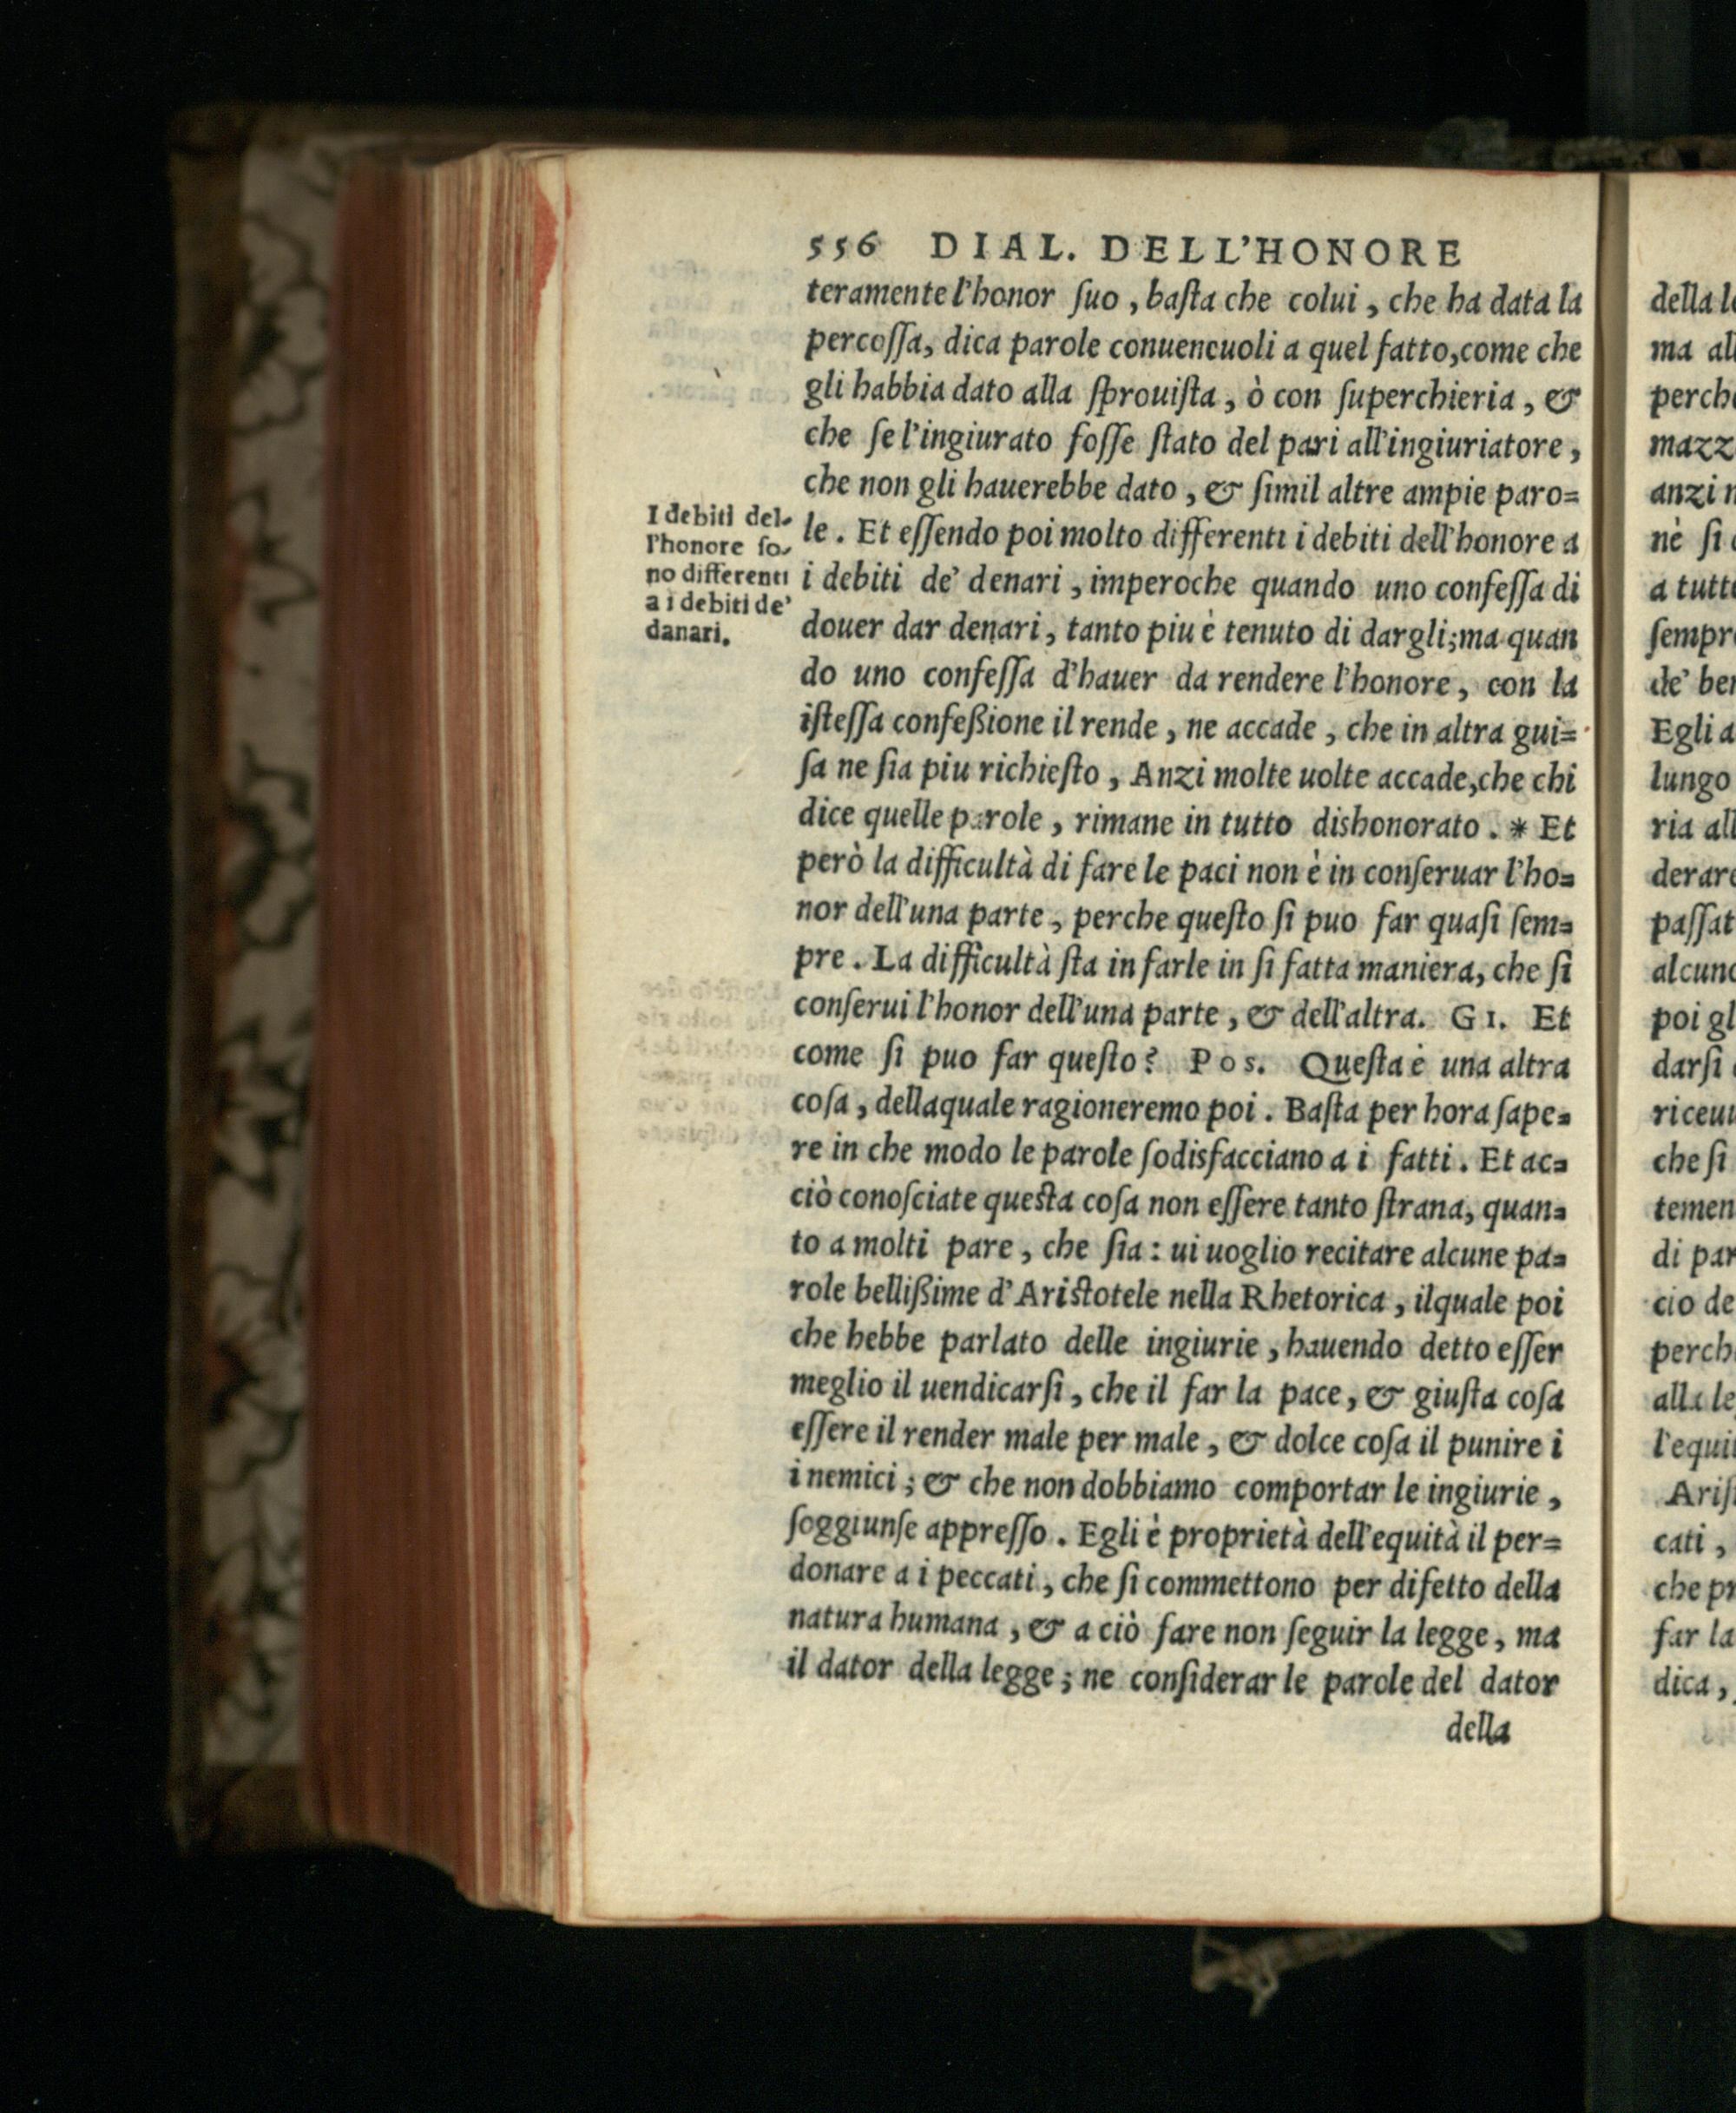 556 DIAL. DELL'HONORE
teramente l'honor ſuo, baſta che colui, che ha data la
percoſſa, dica parole conueneuoli a quel fatto, come che
gli habbia dato alla ſprouiſta, ò con ſuperchieria, &
che ſe l'ingiurato foſſe ſtato del pari all'ingiuriatore,
che non gli hauerebbe dato, & ſimil altre ampie paro=
le. Et eſſendo poi molto differenti i debiti dell'honore a
i debiti de' denari, imperoche quando uno confeſſa di
douer dar denari, tanto piu è tenuto di dargli; ma quan
do uno confeſſa d'hauer da rendere l'honore, con la
iſteſſa confeßione il rende, ne accade, che in altra gui=
ſa ne ſia piu richieſto, Anzi molte uolte accade, che chi
dice quelle parole, rimane in tutto dishonorato. * Et
però la difficultà di fare le paci non è in conſeruar l'ho=
nor dell'una parte, perche queſto ſi puo far quaſi ſem=
pre. La difficultà ſta in farle in ſi fatta maniera, che ſi
conſerui l'honor dell'una parte, & dell'altra. GI. Et
come ſi puo far queſto? Pos. Queſta è una altra
coſa, dellaquale ragioneremo poi. Baſta per hora ſape=
re in che modo le parole ſodisfacciano a i fatti. Et ac=
ciò conoſciate queſta coſa non eſſere tanto ſtrana, quan=
to a molti pare, che ſia: ui uoglio recitare alcune pa=
role bellißime d'Ariſtotele nella Rhetorica, ilquale poi
che hebbe parlato delle ingiurie, hauendo detto eſſer
meglio il uendicarſi, che il far la pace, & giuſta coſa
eſſere il render male per male, & dolce coſa il punire i
inemici; & che non dobbiamo comportar le ingiurie,
ſoggiunſe appreſſo. Egli è proprietà dell'equità il per=
donare a i peccati, che ſi commettono per difetto della
natura humana, & a ciò fare non ſeguir la legge, ma
il dator della legge; ne conſiderar le parole del dator
della
I debiti del-
l'honore ſo-
no differenti
a i debiti de'
danari.
della
ma
mazz
né ſi
a tutt
ſempr
de' ber
Egli a
lungo
ria all
derare
paſſat
alcuno
poi gl
darſi
riceuu
che ſi
temen
di par
cio de
perch
alla le
l'equi
Ariſ
cati,
che pr
far la
dica,